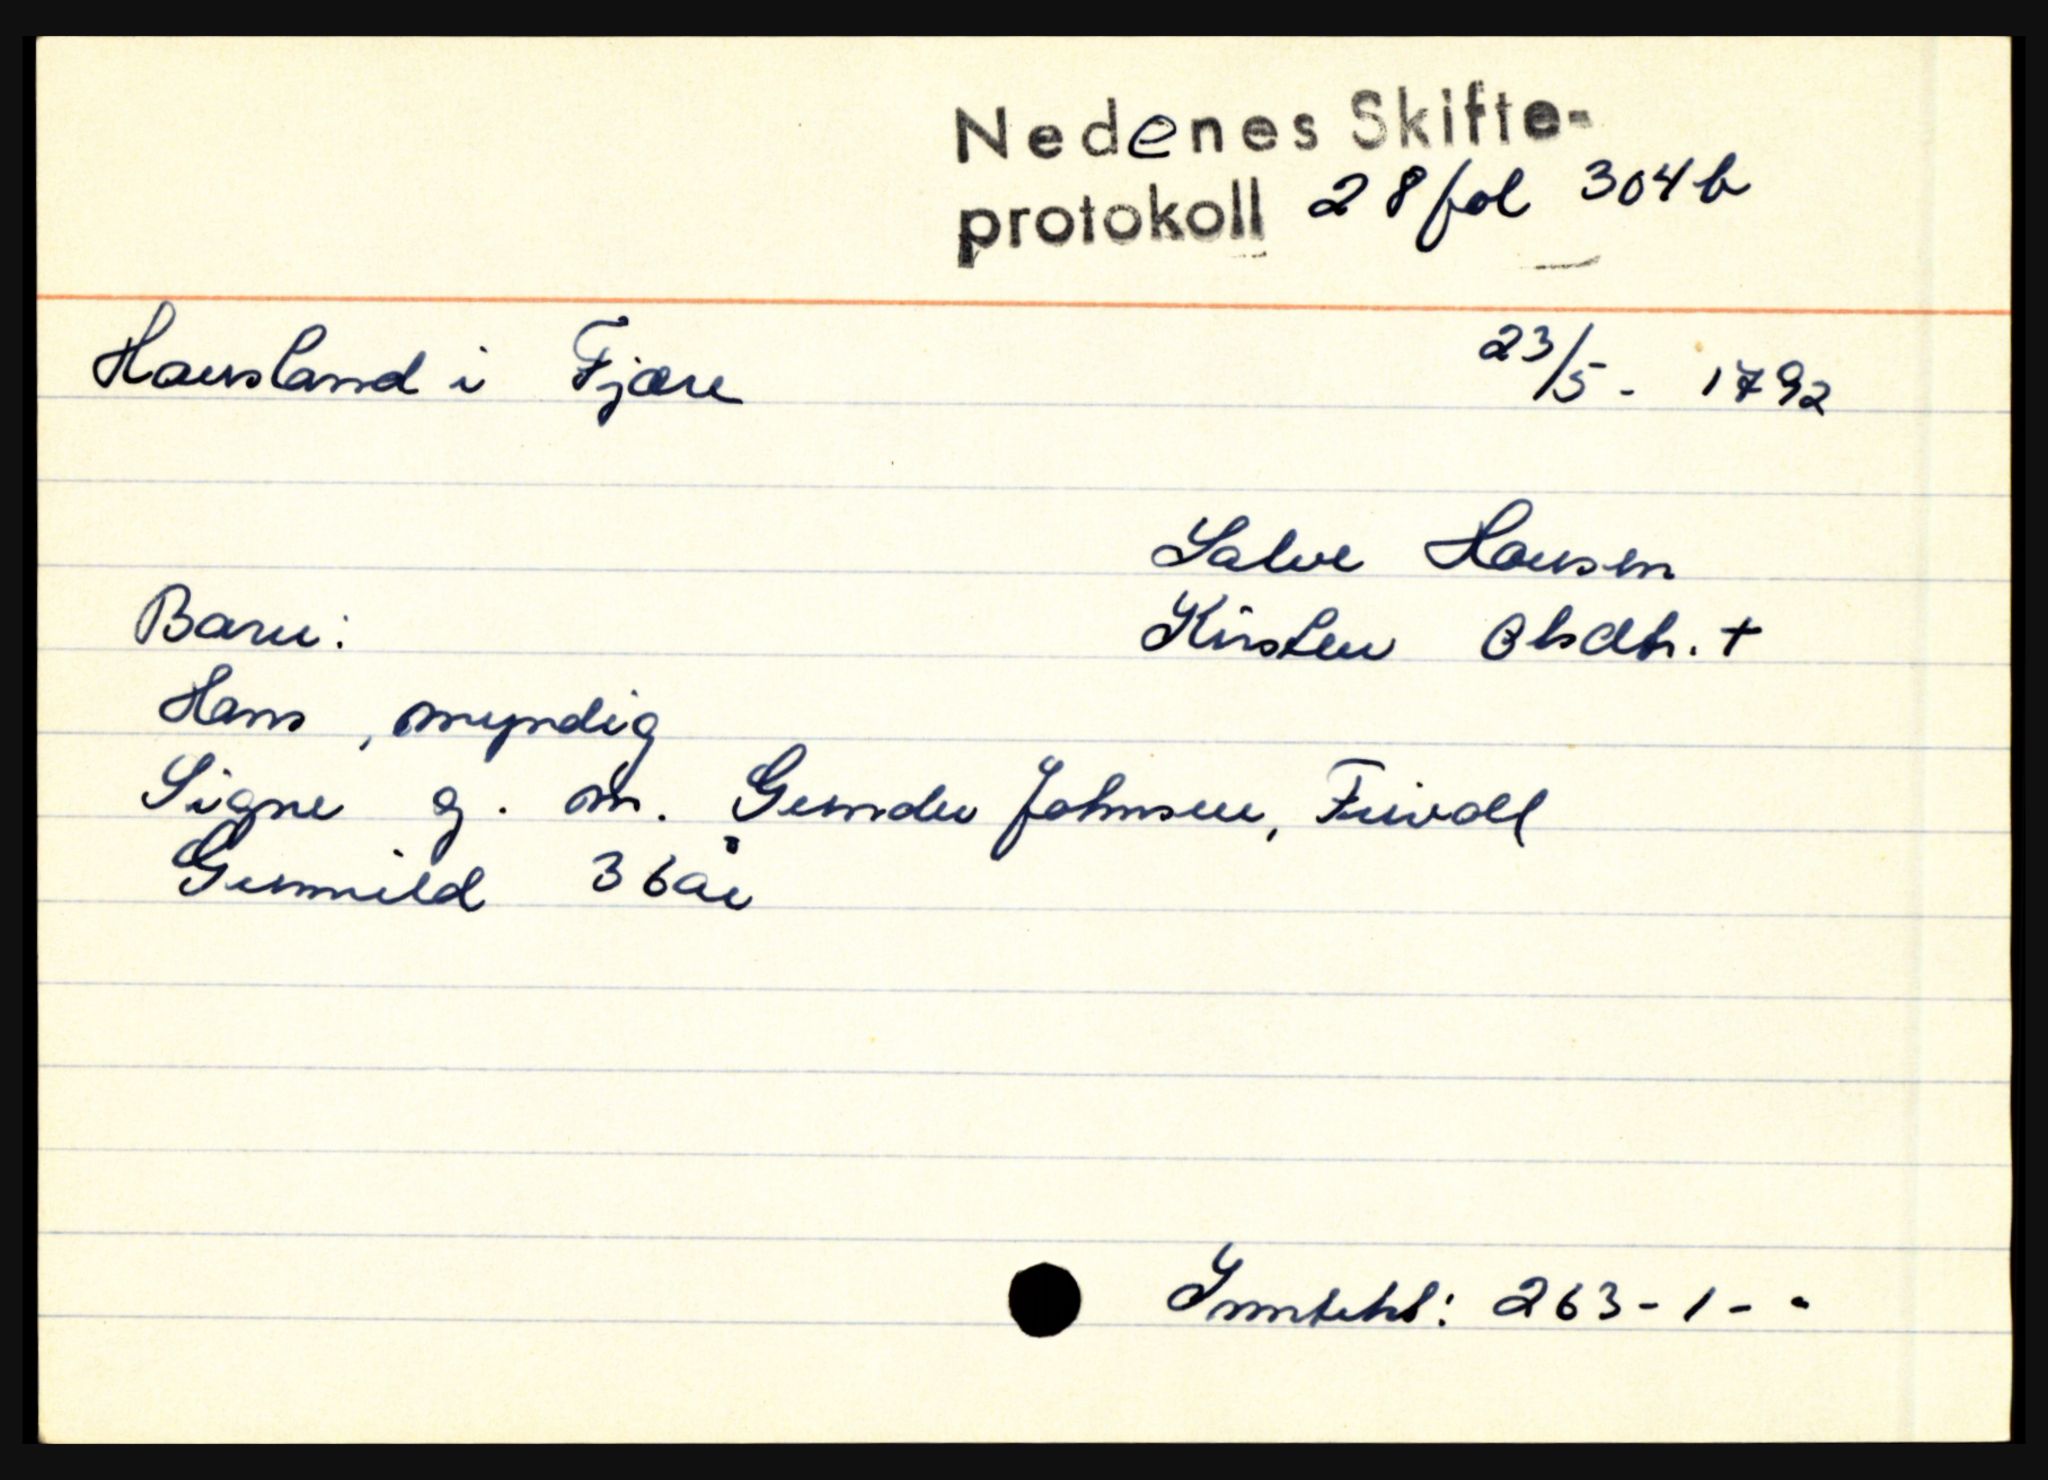 Nedenes Skifte-
protokoll 28 fol 304b
Hausland i Fjære 23/5 - 1792
Salve Hansen
Barn: Kirsten Olsdtr. +
Hans, myndig
Signe g. m. Gunder Johnsen, Frivoll
Gunnild 36 år
Inntekt: 263-1--